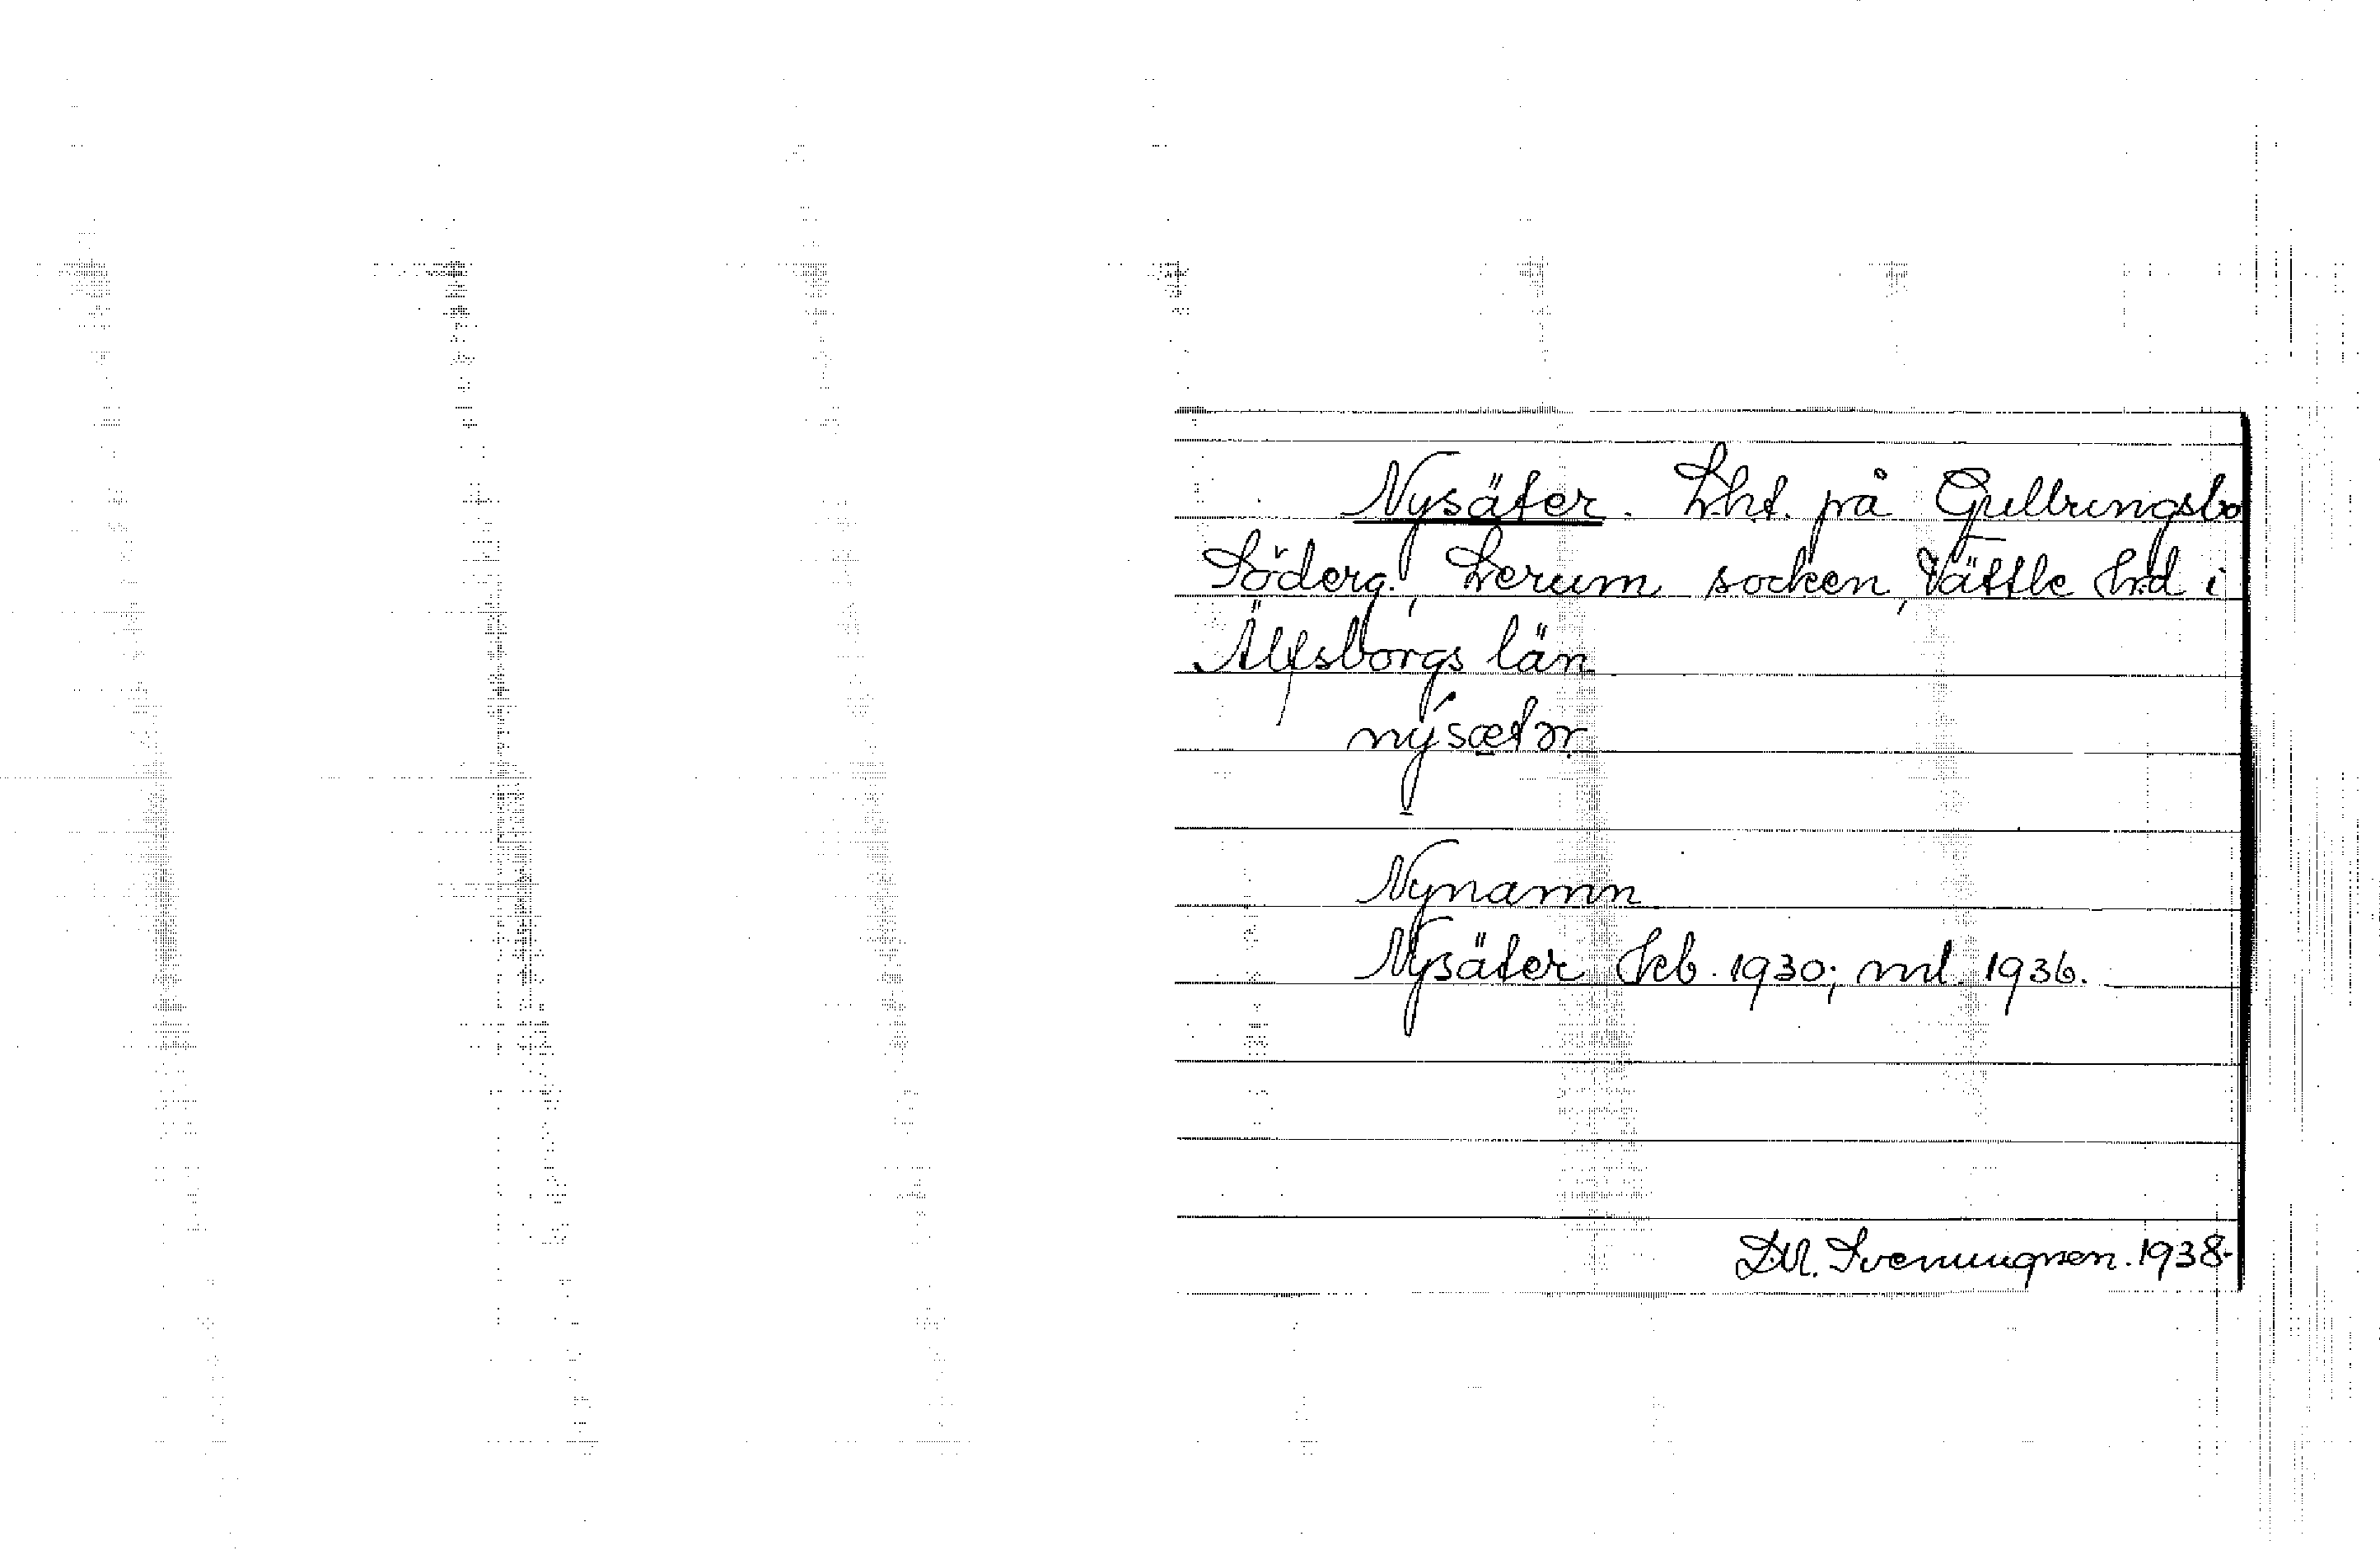 Nysäter. Lht. på Gullringsbo
Söderg., Lerum socken, Vättle hrd i
Älfsborgs län
nýsætər
Nynamn
Nysäter hcb. 1930; ml. 1936.
Svenungsson. 1938.